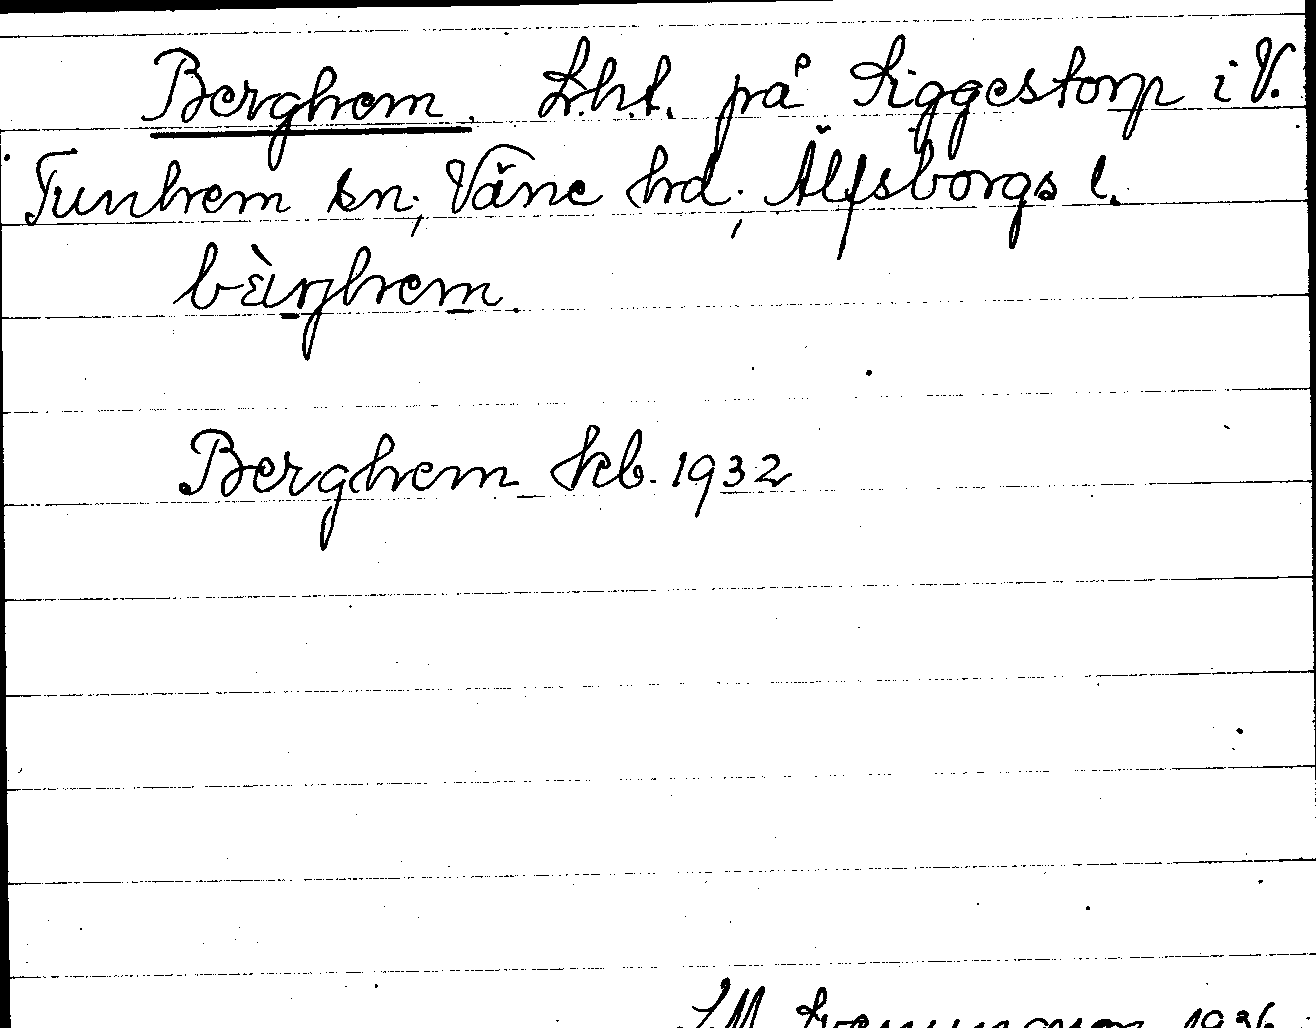 Berghem. Lht. på Siggestorp i V.
Tunhem sn; Väne hd; Älfsborgs l.
bὲrghem.
Berghem kb. 1932
1936